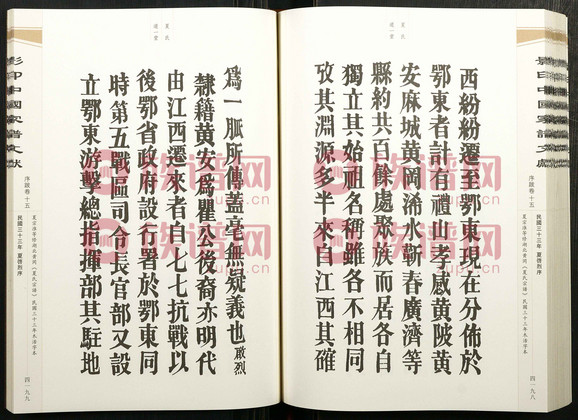 西紛紛遷至鄂東現在分佈於
鄂東者計有禮山孝感黃陂黃
安麻城黃岡浠水蘄春廣濟等
縣約共百餘處聚族而居各自
獨立其始祖名稱雖各不相同
攷其淵源多半來自江西其確
為一脈所傳蓋毫無疑義也啟烈
隸籍黃安為瞿公後裔亦明代
由江西遷來者自七七抗戰以
後鄂省政府設行署於鄂東同
時第五戰區司令長官部又設
立鄂東游擊總指揮部其駐地
夏氏
遵一堂
夏氏
遵一堂
影印中國家譜文獻
序跋卷十五
民國三十三年 夏啓烈序
夏宗淮等修湖北黃岡《夏氏宗譜》民國三十三年木活字本
四一九八
影印中國家譜文獻
序跋卷十五
民國三十三年 夏啓烈序
夏宗淮等修湖北黃岡《夏氏宗譜》民國三十三年木活字本
四一九九
族譜网
zupu.cn
族譜网
zupu.cn